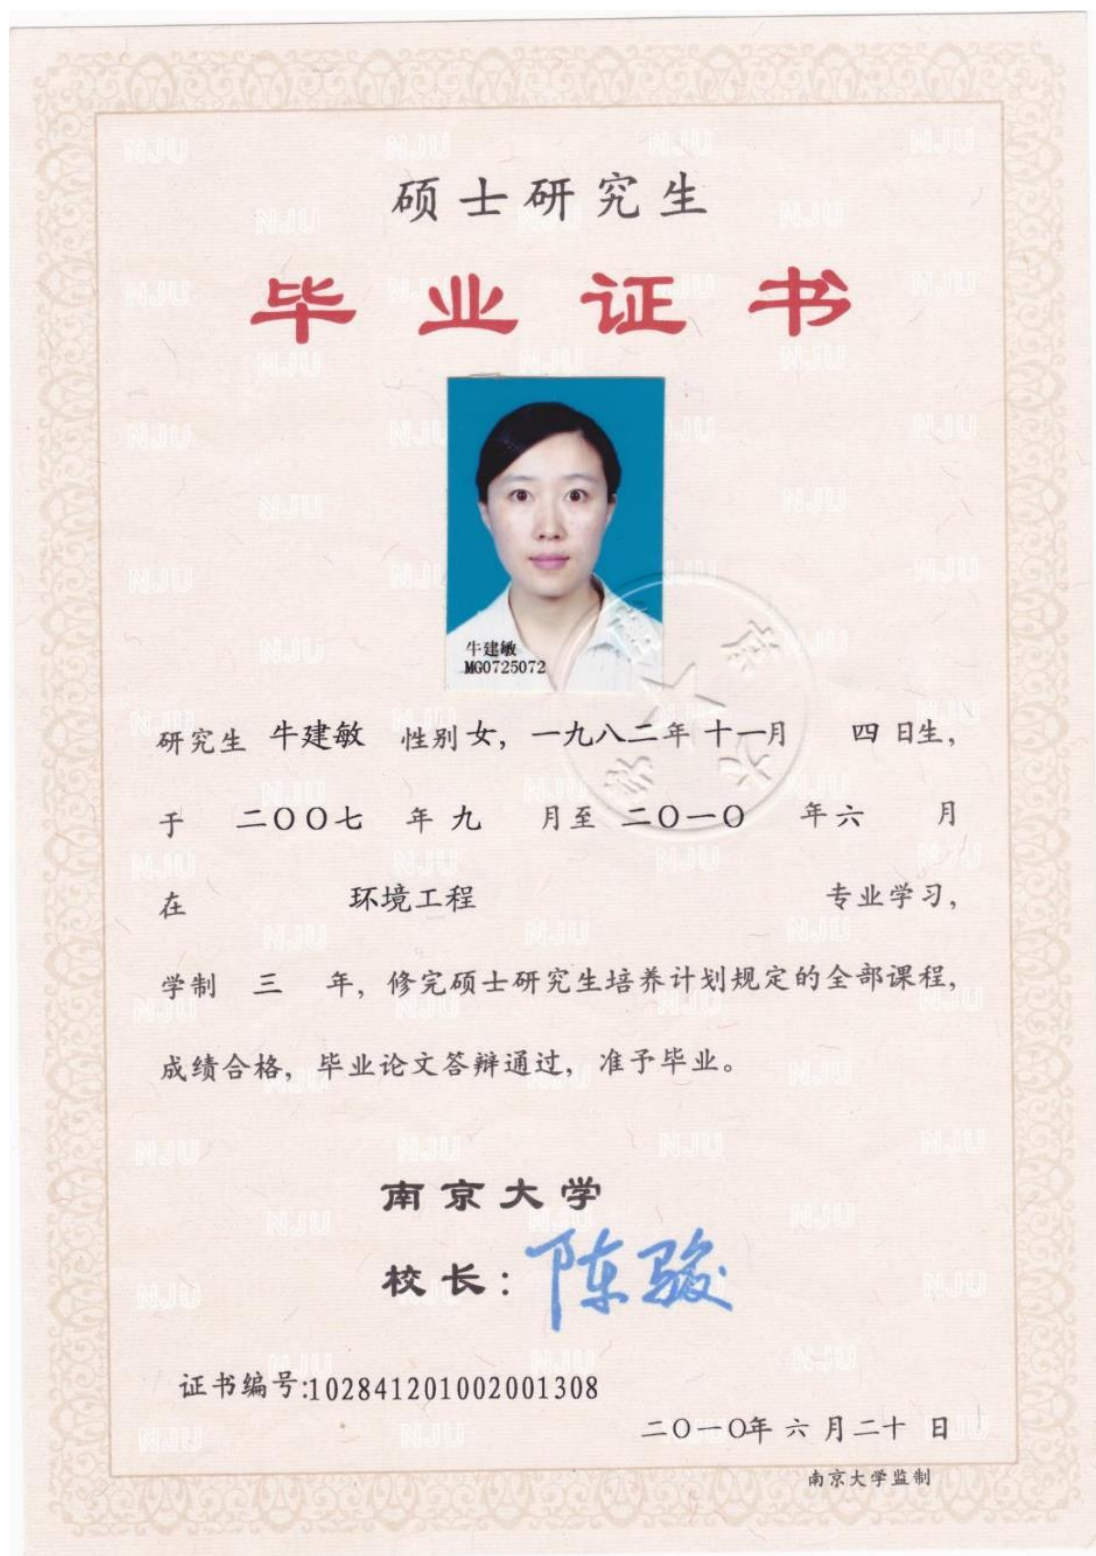 硕士研究生
毕业证书
牛建敏
MG0725072
研究生 牛建敏 性别女，一九八二年十一月 四日生，
于 二〇〇七 年九 月至 二〇一〇 年六 月
在 环境工程 专业学习，
学制 三 年，修完硕士研究生培养计划规定的全部课程，
成绩合格，毕业论文答辩通过，准予毕业。
南京大学
校长：陈骏
证书编号:102841201002001308
二〇一〇年六月二十日
南京大学监制